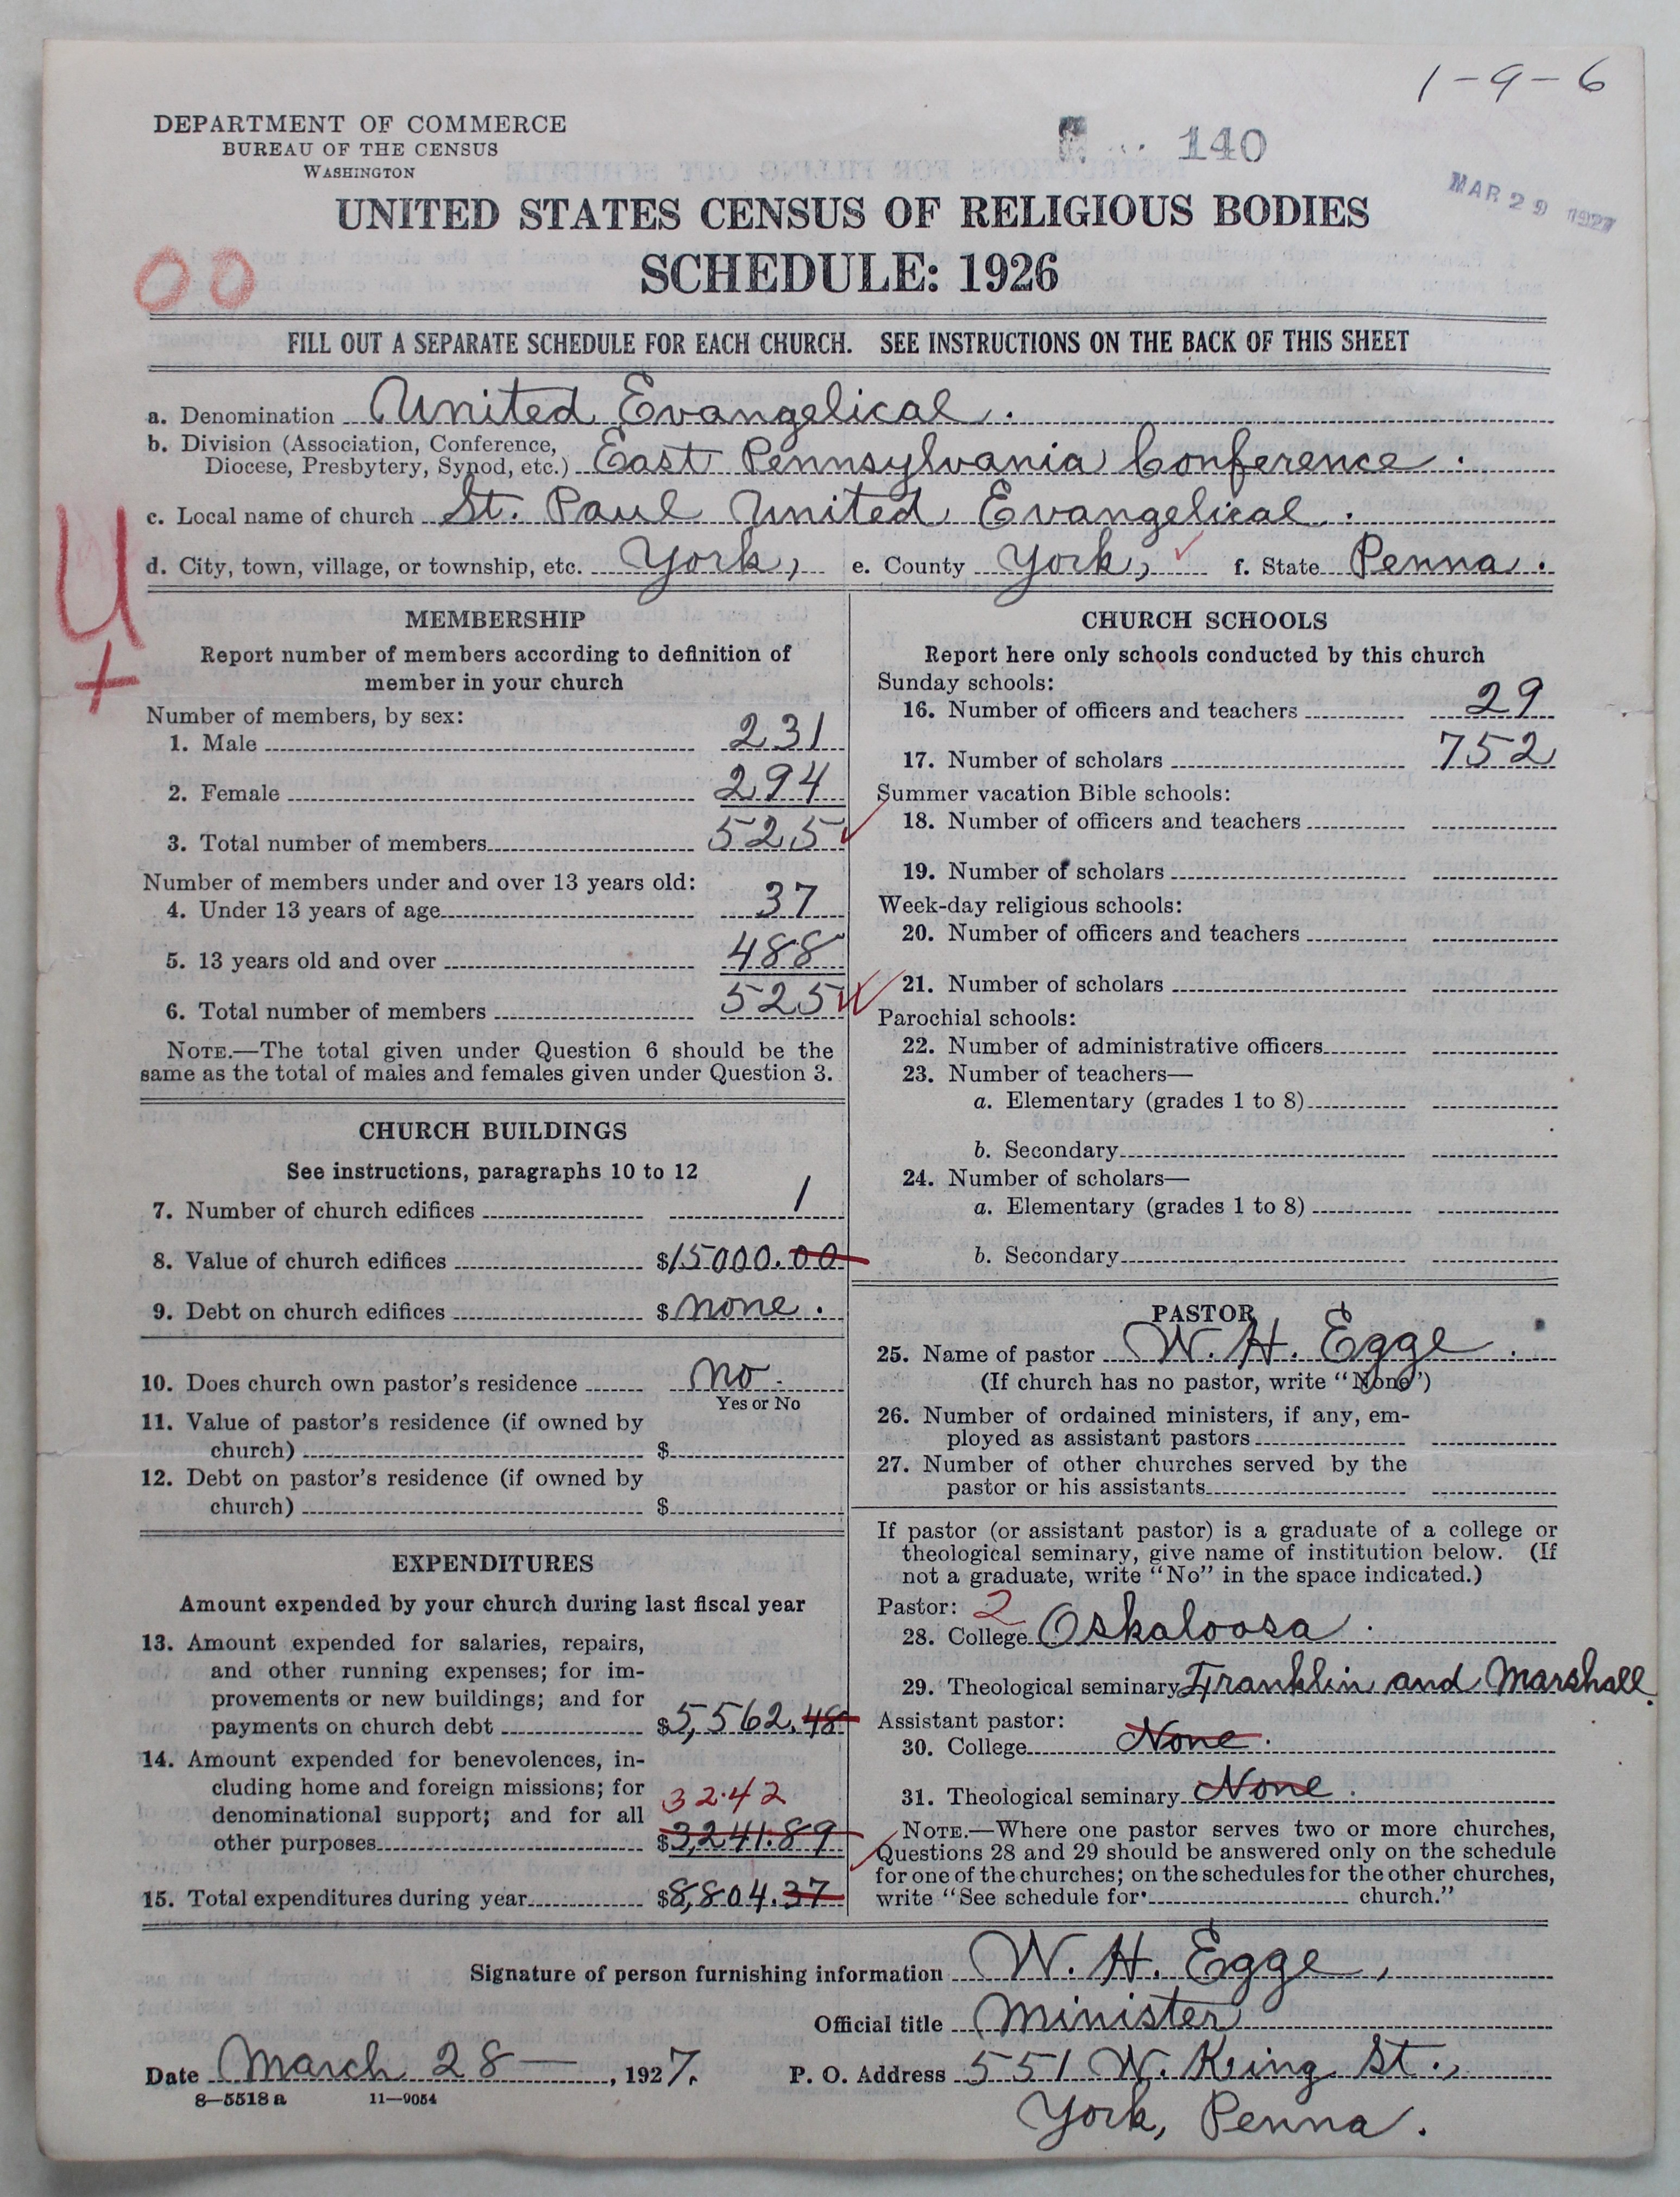 1-9-6
DEPARTMENT OF COMMERCE
BUREAU OF THE CENSUS
WASHINGTON
140
MAR 29 1927
UNITED STATES CENSUS OF RELIGIOUS BODIES
SCHEDULE: 1926
00
FILL OUT A SEPARATE SCHEDULE FOR EACH CHURCH. SEE INSTRUCTIONS ON THE BACK OF THIS SHEET
a. Denomination United Evangelical.
b. Division (Association, Conference,
Diocese, Presbytery, Synod, etc.) East Pennsylvania Conference.
c. Local name of church St. Paul United Evangelical.
d. City, town, village, or township, etc. York, e. County York, f. State Penna.
U
+
MEMBERSHIP
Report number of members according to definition of
member in your church
Number of members, by sex:
1. Male 231
2. Female 294
3. Total number of members 525
Number of members under and over 13 years old:
4. Under 13 years of age 37
5. 13 years old and over 488
6. Total number of members 525
NOTE.—The total given under Question 6 should be the
same as the total of males and females given under Question 3.
CHURCH BUILDINGS
See instructions, paragraphs 10 to 12
7. Number of church edifices 1
8. Value of church edifices $15000.00
9. Debt on church edifices $none.
10. Does church own pastor's residence no.
Yes or No
11. Value of pastor's residence (if owned by
church) $
12. Debt on pastor's residence (if owned by
church) $
EXPENDITURES
Amount expended by your church during last fiscal year
13. Amount expended for salaries, repairs,
and other running expenses; for im-
provements or new buildings; and for
payments on church debt $5,562.48
14. Amount expended for benevolences, in-
cluding home and foreign missions; for
denominational support; and for all 32.42
other purposes $3,241.89
15. Total expenditures during year $8,804.37
CHURCH SCHOOLS
Report here only schools conducted by this church
Sunday schools:
16. Number of officers and teachers 29
17. Number of scholars 752
Summer vacation Bible schools:
18. Number of officers and teachers
19. Number of scholars
Week-day religious schools:
20. Number of officers and teachers
21. Number of scholars
Parochial schools:
22. Number of administrative officers
23. Number of teachers—
a. Elementary (grades 1 to 8)
b. Secondary
24. Number of scholars—
a. Elementary (grades 1 to 8)
b. Secondary
PASTOR
25. Name of pastor W. H. Egge.
(If church has no pastor, write "None")
26. Number of ordained ministers, if any, em-
ployed as assistant pastors
27. Number of other churches served by the
pastor or his assistants
If pastor (or assistant pastor) is a graduate of a college or
theological seminary, give name of institution below. (If
not a graduate, write "No" in the space indicated.)
Pastor: 2
28. College Oskaloosa.
29. Theological seminary Franklin and Marshall.
Assistant pastor:
30. College None.
31. Theological seminary None.
NOTE.—Where one pastor serves two or more churches,
Questions 28 and 29 should be answered only on the schedule
for one of the churches; on the schedules for the other churches,
write "See schedule for church."
Signature of person furnishing information W. H. Egge,
Official title Minister
Date March 28 —, 1927. P. O. Address 551 W. King St.,
8—5518 a 11—9054
York, Penna.